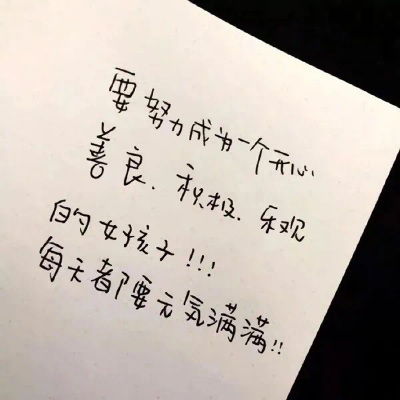 要努力成为一个开心
善良、积极、乐观
的女孩子!!!
每天都要元气满满!!